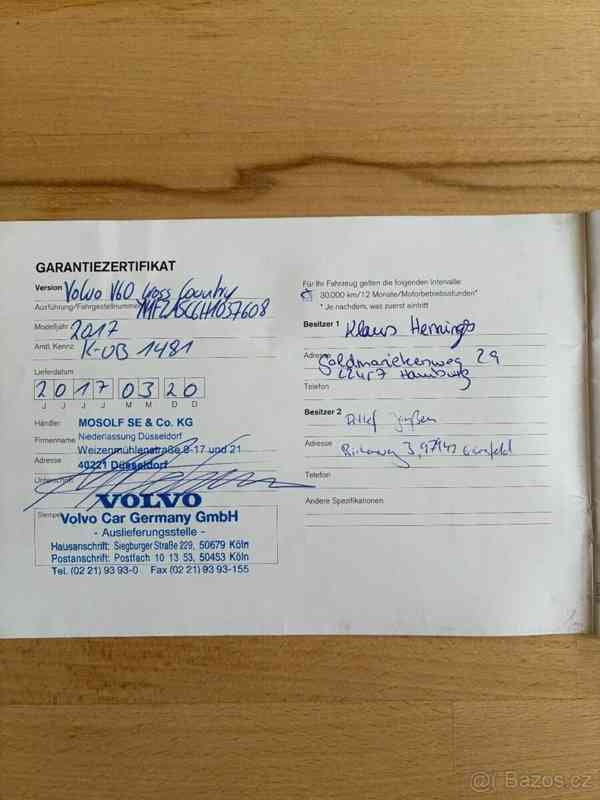 GARANTIEZERTIFIKAT
Version Volvo V60 Cross Country
Ausführung/Fahrgestellnummer
Modelljahr 2017
Amtl. Kennz. K-UB 1481
Lieferdatum
2 0 1 7 0 3 2 0
J J J J M M D D
Händler MOSOLF SE & Co. KG
Firmenname Niederlassung Düsseldorf
Weizenmühlenstraße 8-17 und 21
Adresse 40221 Düsseldorf
Unterschrift
VOLVO
Stempel Volvo Car Germany GmbH
- Auslieferungsstelle -
Hausanschrift: Siegburger Straße 229, 50679 Köln
Postanschrift: Postfach 10 13 53, 50453 Köln
Tel. (02 21) 93 93-0 Fax (02 21) 93 93-155
Für Ihr Fahrzeug gelten die folgenden Intervalle:
30.000 km/12 Monate/Motorbetriebsstunden*
* Je nachdem, was zuerst eintritt
Besitzer 1 Klaus Hennings
Adresse 29
22457 Hamburg
Telefon
Besitzer 2
Detlef
Adresse 3, 97447
Telefon
Andere Spezifikationen
Bazos.cz